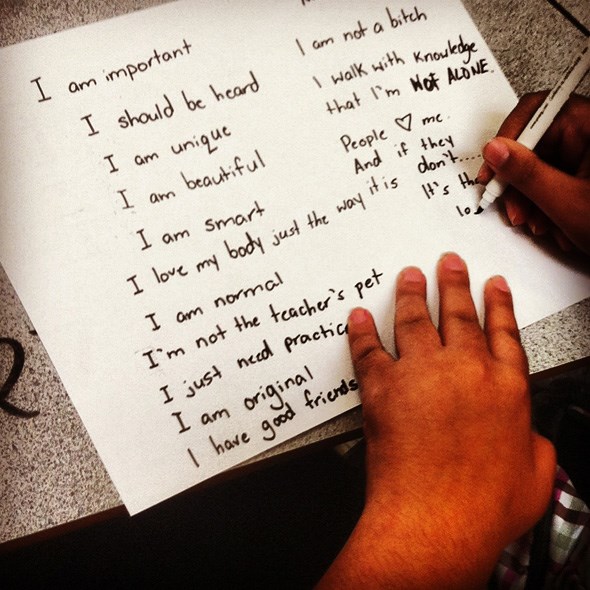 I am important
I should be heard
I am unique
I am beautiful
I am smart
I love my body just the way it is
I am normal
I'm not the teacher's pet
I just need practice
I am original
I have good friends
I am not a bitch
I walk with knowledge
that I'm NOT ALONE.
People ♡ me.
And if they
don't.....
It's